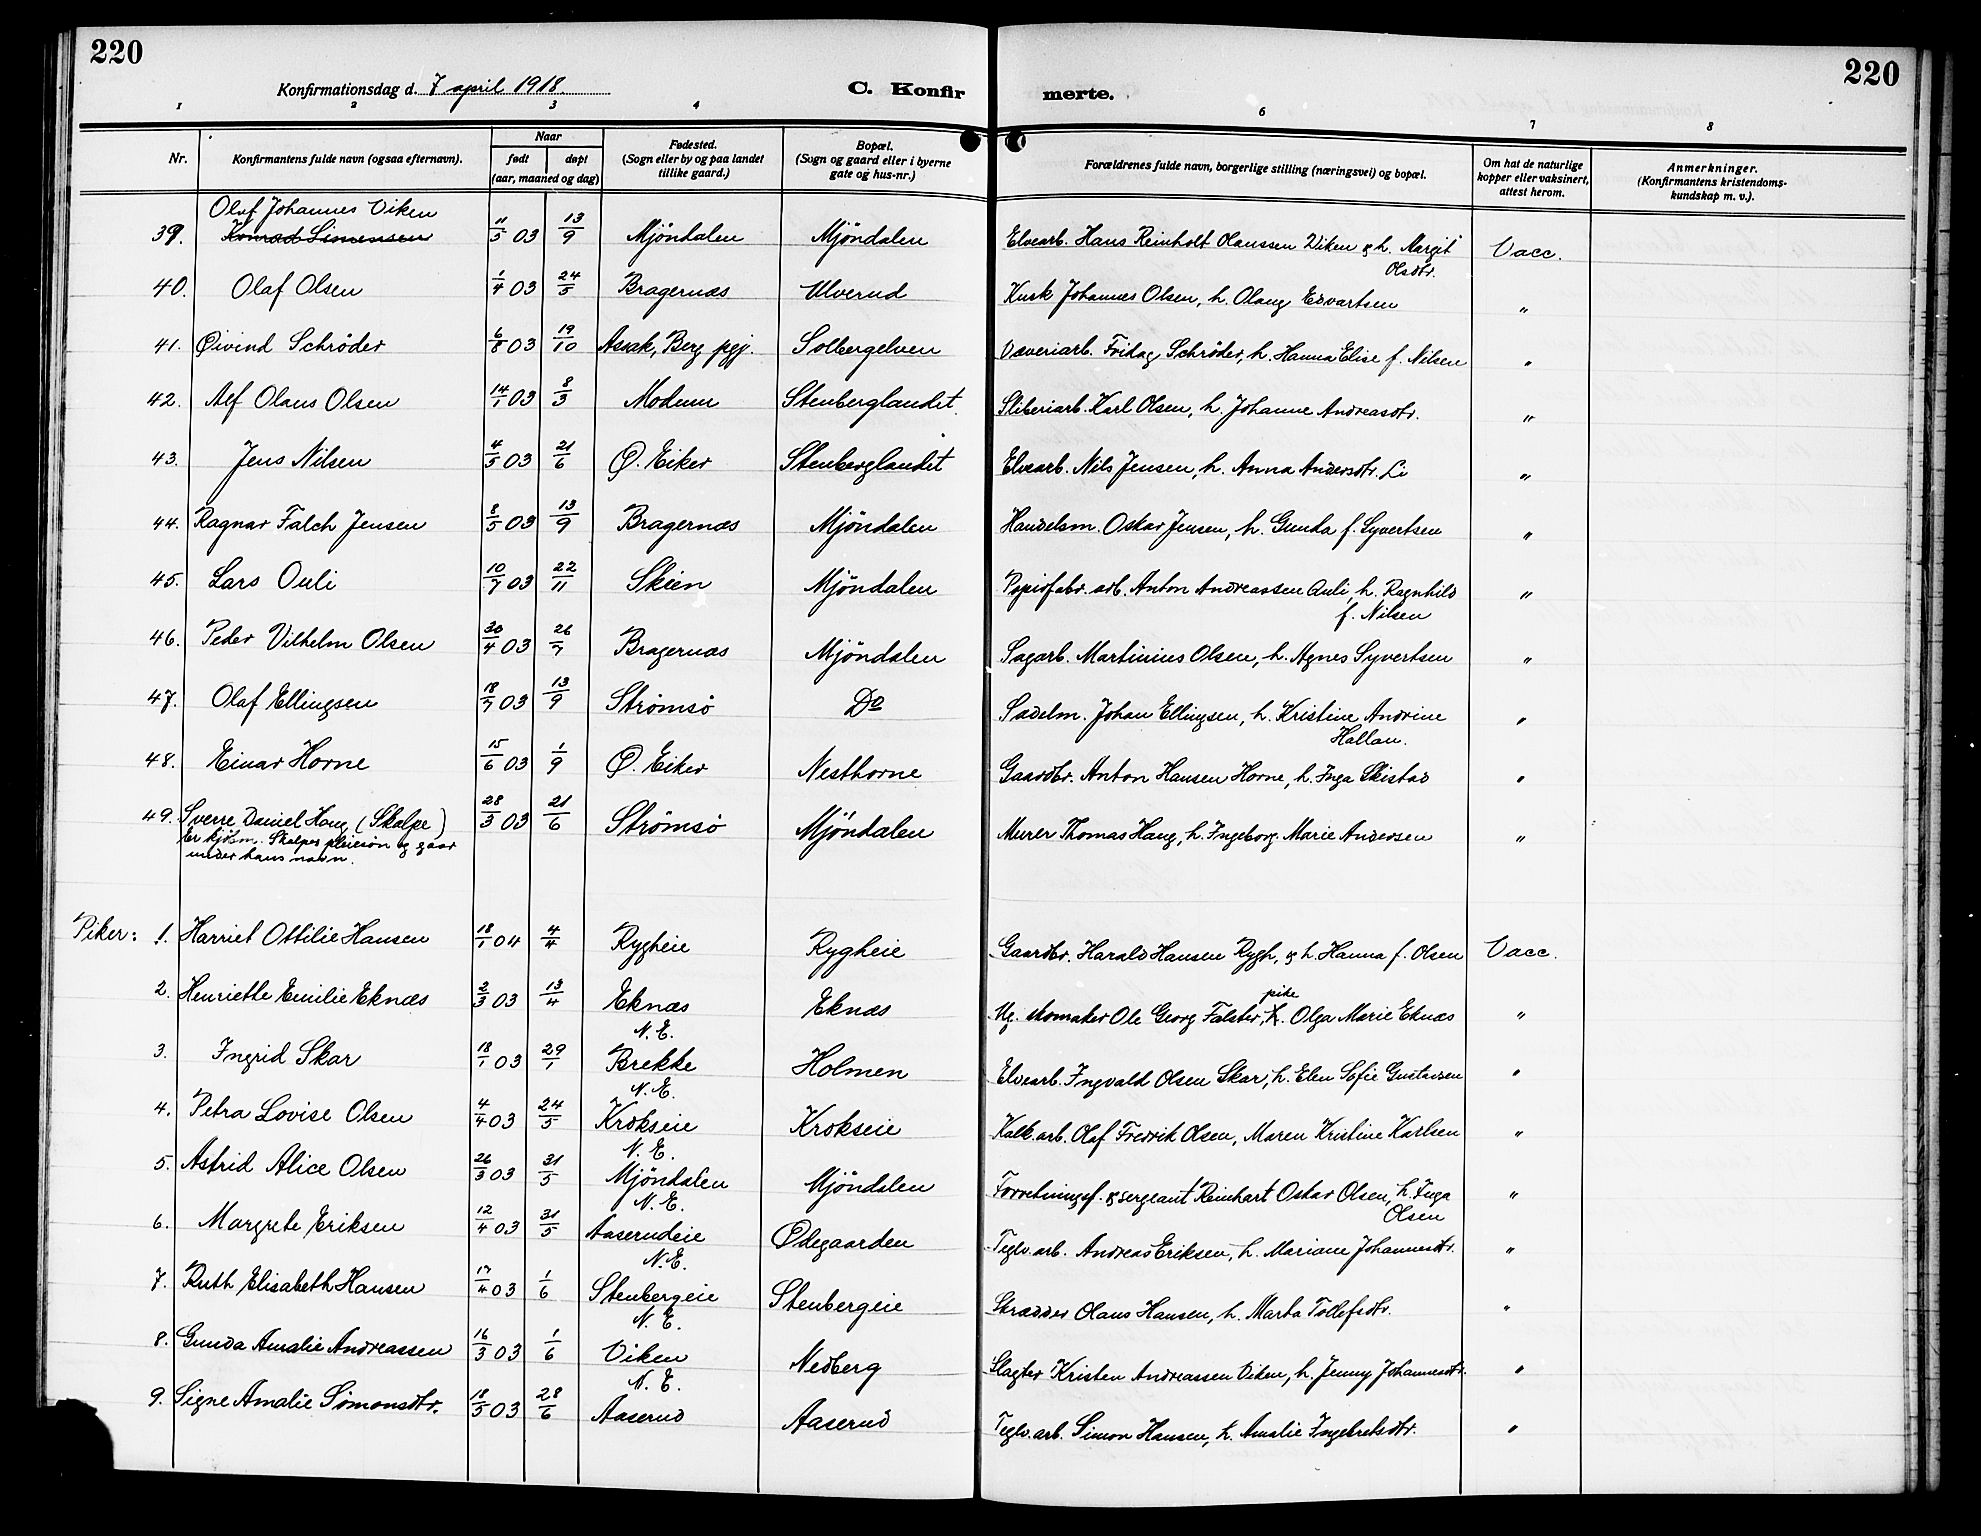 220
220
Konfirmationsdag d. 7 april 1918.
C. Konfir merte.
1 2 3 4 6 7 8
Nr. Konfirmantens fulde navn (ogsaa efternavn). Naar født døpt (aar, maaned og dag) Fødested. (Sogn eller by og paa landet tillike gaard.) Bopæl. (Sogn og gaard eller i byerne gate og hus-nr.) Forældrenes fulde navn, borgerlige stilling (næringsvei) og bopæl. Om hat de naturlige kopper eller vaksinert, attest herom. Anmerkninger. (Konfirmantens kristendoms-kundskap m. v.).
Olaf Johannes Viken
39. Konrad Simensen 11/5 03 13/9 Mjöndalen Mjöndalen Elvearb. Hans Reinholt Olaussen Viken & h. Margit Olsdtr. Vacc.
40. Olaf Olsen 1/4 03 24/5 Bragernæs Ulverud Kusk Johannes Olsen, h. Olaug Edvartsen "
41. Øivind Schrøder 6/8 03 19/10 Asak, Berg pgj. Solbergelven Væveriarb. Fridag Schrøder, h. Hanna Elise f. Nilsen "
42. Alf Olaus Olsen 14/1 03 8/3 Modum Stenberglandet Sliberiarb. Karl Olsen, h. Johanne Andreasdtr. "
43. Jens Nilsen 4/5 03 21/6 Ø. Eiker Stenberglandet Elvearb. Nils Jensen, h. Anna Andersdtr. Li "
44. Ragnar Falch Jensen 8/5 03 13/9 Bragernæs Mjöndalen Handelsm. Oskar Jensen, h. Gunda f. Syvertsen "
45. Lars Ouli 10/7 03 22/11 Skien Mjöndalen Papirfabr. arb. Anton Andreassen Auli, h. Ragnhild f. Nilsen "
46. Peder Vilhelm Olsen 30/4 03 26/7 Bragernæs Mjöndalen Sagarb. Martinius Olsen, h. Agnes Syvertsen "
47. Olaf Ellingsen 18/7 03 13/9 Strømsø Do Sadelm. Johan Ellingsen, h. Kristine Andrine Hallan. "
48. Einar Horne 15/6 03 1/9 Ø. Eiker Nesthorne Gaardbr. Anton Hansen Horne, h. Inga Skistad "
49. Sverre Daniel Haug (Skalpe) 28/3 03 21/6 Strømsø Mjöndalen Murer Thomas Haug, h. Ingeborg Marie Andersen "
Er kjøbm. Skalpes pleiesøn og gaar
under hans navn.
Piker: 1. Harriet Ottilie Hansen 18/1 04 4/4 Rygheie Rygheie Gaardbr. Harald Hansen Rygh, & h. Hanna f. Olsen Vacc.
2. Henriette Emilie Eknæs 2/3 03 13/4 Eknæs Eknæs Ug. skomaker Ole Georg Falster, pike Olga Marie Eknæs "
3. Ingrid Skar 18/1 03 29/1 N. E. Brekke Holmen Elvearb. Ingvald Olsen Skar, h. Elen Sofie Gustavsen "
4. Petra Lovise Olsen 4/4 03 24/5 N. E. Krokseie Krokseie Kalk.arb. Olaf Fredrik Olsen, Maren Kristine Karlsen "
5. Astrid Alice Olsen 26/3 03 31/5 N. E. Mjöndalen Mjöndalen Forretningsf. & sergeant Reinhart Oskar Olsen, h. Inga Olsen "
6. Margrete Eriksen 12/4 03 31/5 N. E. Aaserudeie Ødegaarden Teglv.arb. Andreas Eriksen, h. Mariane Johannesdtr. "
7. Ruth Elisabeth Hansen 17/4 03 1/6 N. E. Stenbergeie Stenbergeie Skrædder Olaus Hansen, h. Marta Tollefsdtr. "
8. Gunda Amalie Andreassen 16/3 03 1/6 N. E. Viken Nedberg Slagter Kristen Andreassen Viken, h. Jenny Johannesdtr. "
9. Signe Amalie Simonsdtr. 18/5 03 28/6 N. E. Aaserud Aaserud Teglv.arb. Simon Hansen, h. Amalie Ingebretsdtr. "